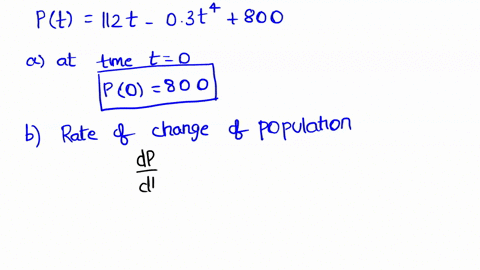 P(t) = 112t - 0.3t⁴ + 800
a) at time t=0
P(0) = 800
b) Rate of change of population
dP
dl